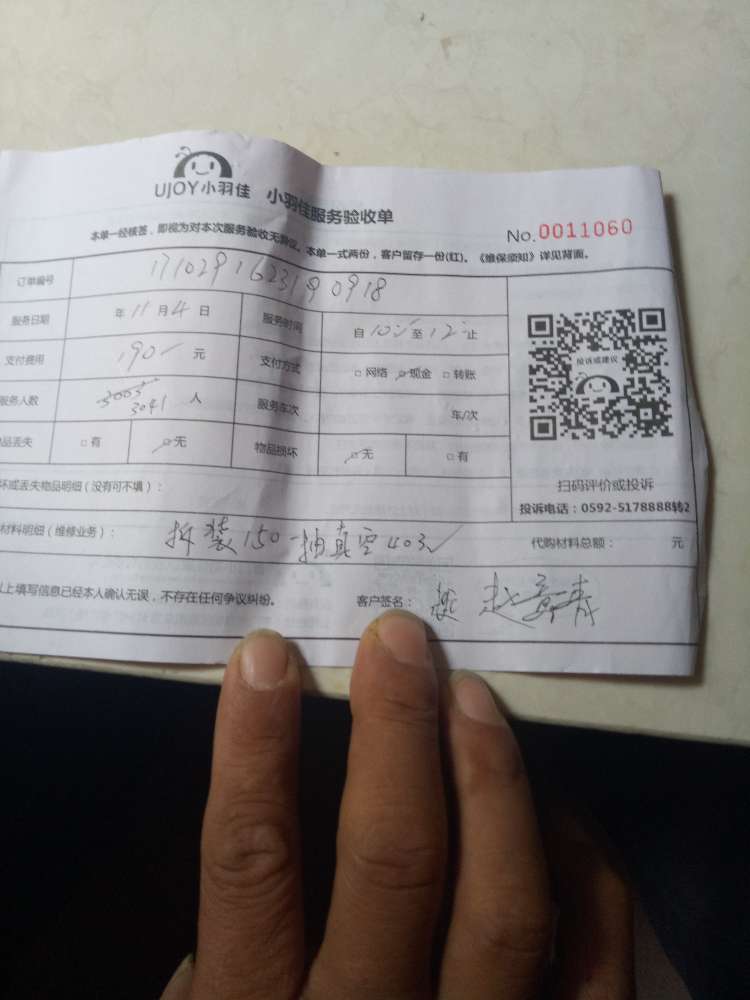 UJOY小羽佳 小羽佳服务验收单
No.0011060
本单一经核签，即视为对本次服务验收无异议。本单一式两份，客户留存一份(红)。《维保须知》详见背面。
订单编号 171029162319 0918
服务日期 年 11 月 4 日 服务时间 自 10 至 12 止
支付费用 190 元 支付方式 □网络 □现金 □转账
服务人数 3003 3041 人 服务车次 车/次
品丢失 □有 □无 物品损坏 □无 □有
坏或丢失物品明细(没有可不填)：
材料明细(维修业务)： 拆装150 抽真空40 代购材料总额： 元
上填写信息已经本人确认无误，不存在任何争议纠纷。 客户签名：
投诉或建议
扫码评价或投诉
投诉电话：0592-5178888转2